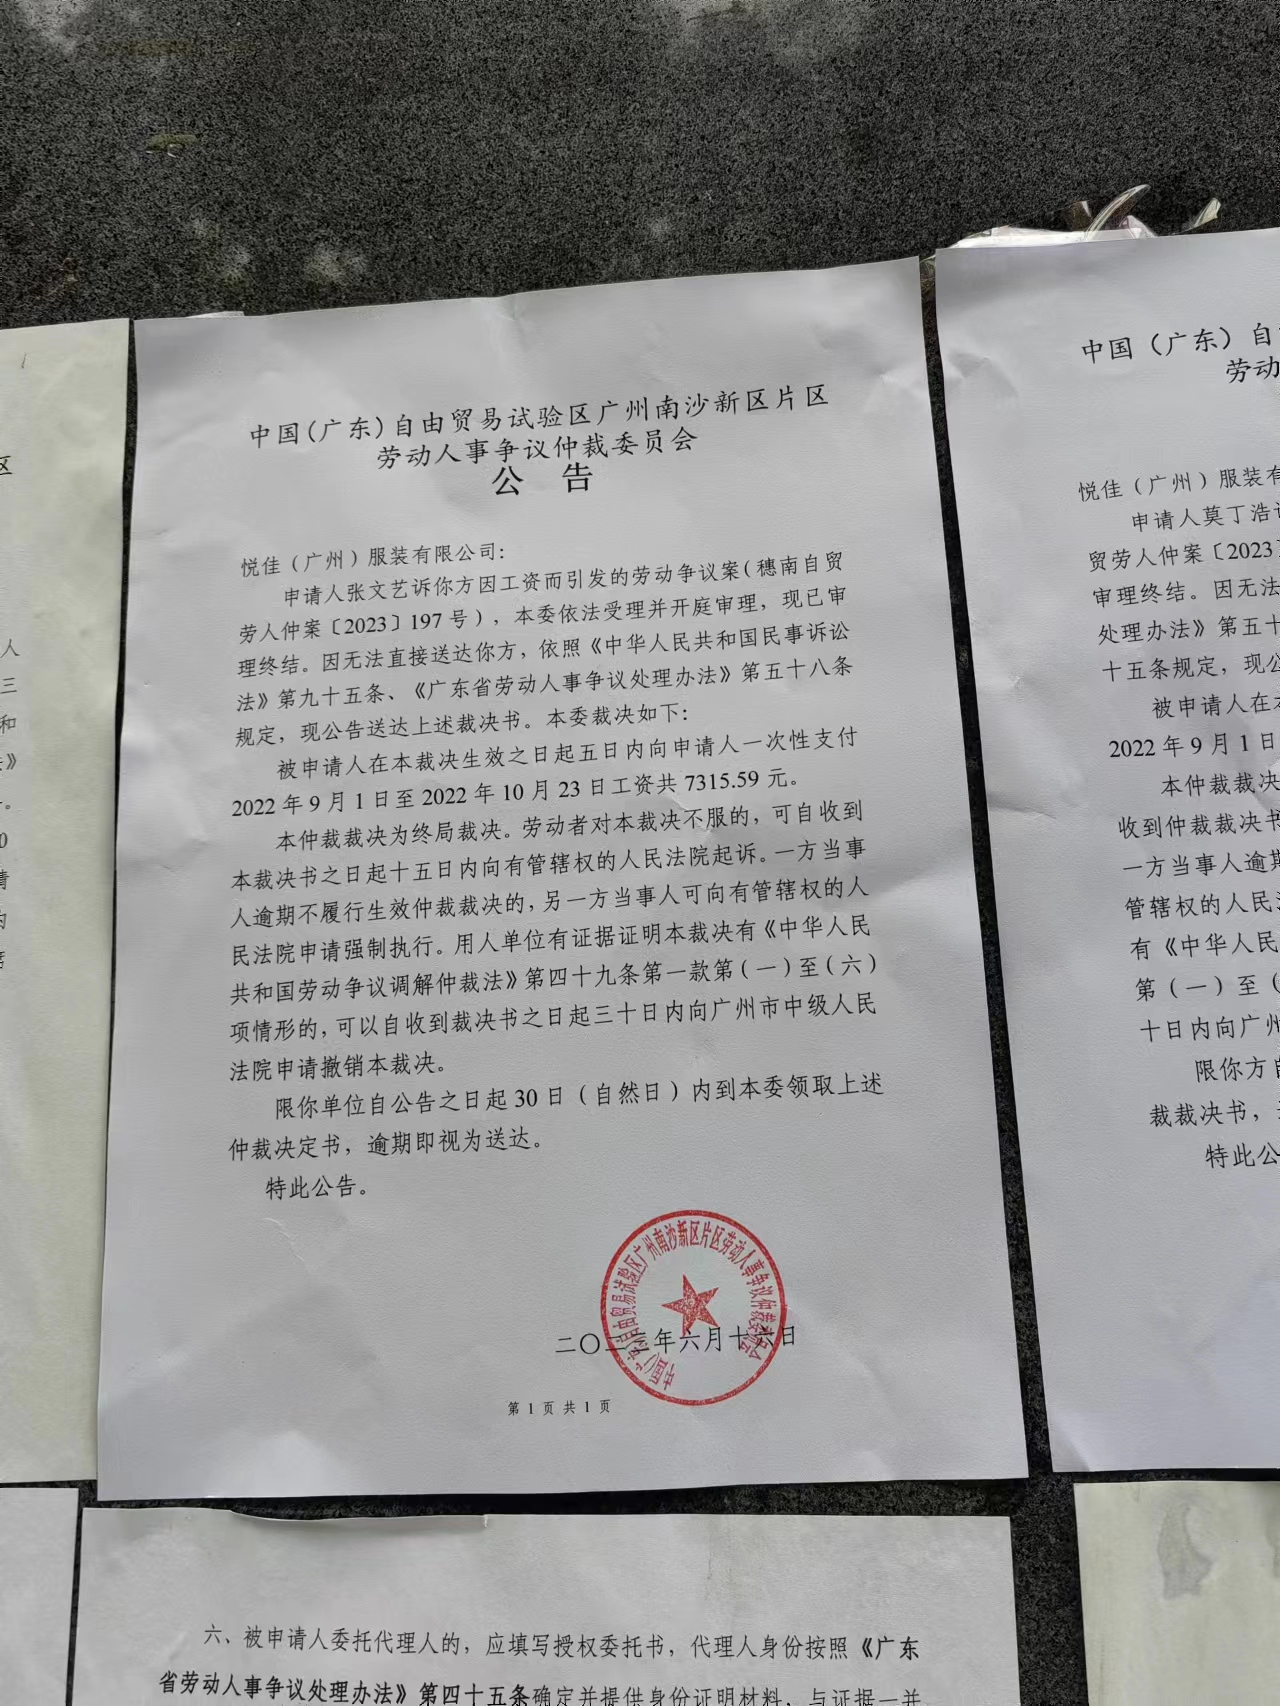 中国(广东)自由贸易试验区广州南沙新区片区
劳动人事争议仲裁委员会
公 告
悦佳（广州）服装有限公司：
申请人张文艺诉你方因工资而引发的劳动争议案(穗南自贸
劳人仲案〔2023〕197号)，本委依法受理并开庭审理，现已审
理终结。因无法直接送达你方，依照《中华人民共和国民事诉讼
法》第九十五条、《广东省劳动人事争议处理办法》第五十八条
规定，现公告送达上述裁决书。本委裁决如下：
被申请人在本裁决生效之日起五日内向申请人一次性支付
2022年9月1日至2022年10月23日工资共7315.59元。
本仲裁裁决为终局裁决。劳动者对本裁决不服的，可自收到
本裁决书之日起十五日内向有管辖权的人民法院起诉。一方当事
人逾期不履行生效仲裁裁决的，另一方当事人可向有管辖权的人
民法院申请强制执行。用人单位有证据证明本裁决有《中华人民
共和国劳动争议调解仲裁法》第四十九条第一款第(一)至(六)
项情形的，可以自收到裁决书之日起三十日内向广州市中级人民
法院申请撤销本裁决。
限你单位自公告之日起30日（自然日）内到本委领取上述
仲裁决定书，逾期即视为送达。
特此公告。
中国(广东)自由贸易试验区广州南沙新区片区劳动人事争议仲裁委员会
二〇二三年六月十六日
第1页共1页
中国（广东）自
劳动
悦佳（广州）服装有
申请人莫丁浩
贸劳人仲案〔2023〕
审理终结。因无法
处理办法》第五十
十五条规定，现公
被申请人在本
2022年9月1日
本仲裁裁决
收到仲裁裁决书
一方当事人逾期
管辖权的人民法
有《中华人民
第（一）至（
十日内向广州
限你方自
裁裁决书，
特此公
区
人
三
和
》
0
六、被申请人委托代理人的，应填写授权委托书，代理人身份按照《广东
省劳动人事争议处理办法》第四十五条确定并提供身份证明材料，与证据一并